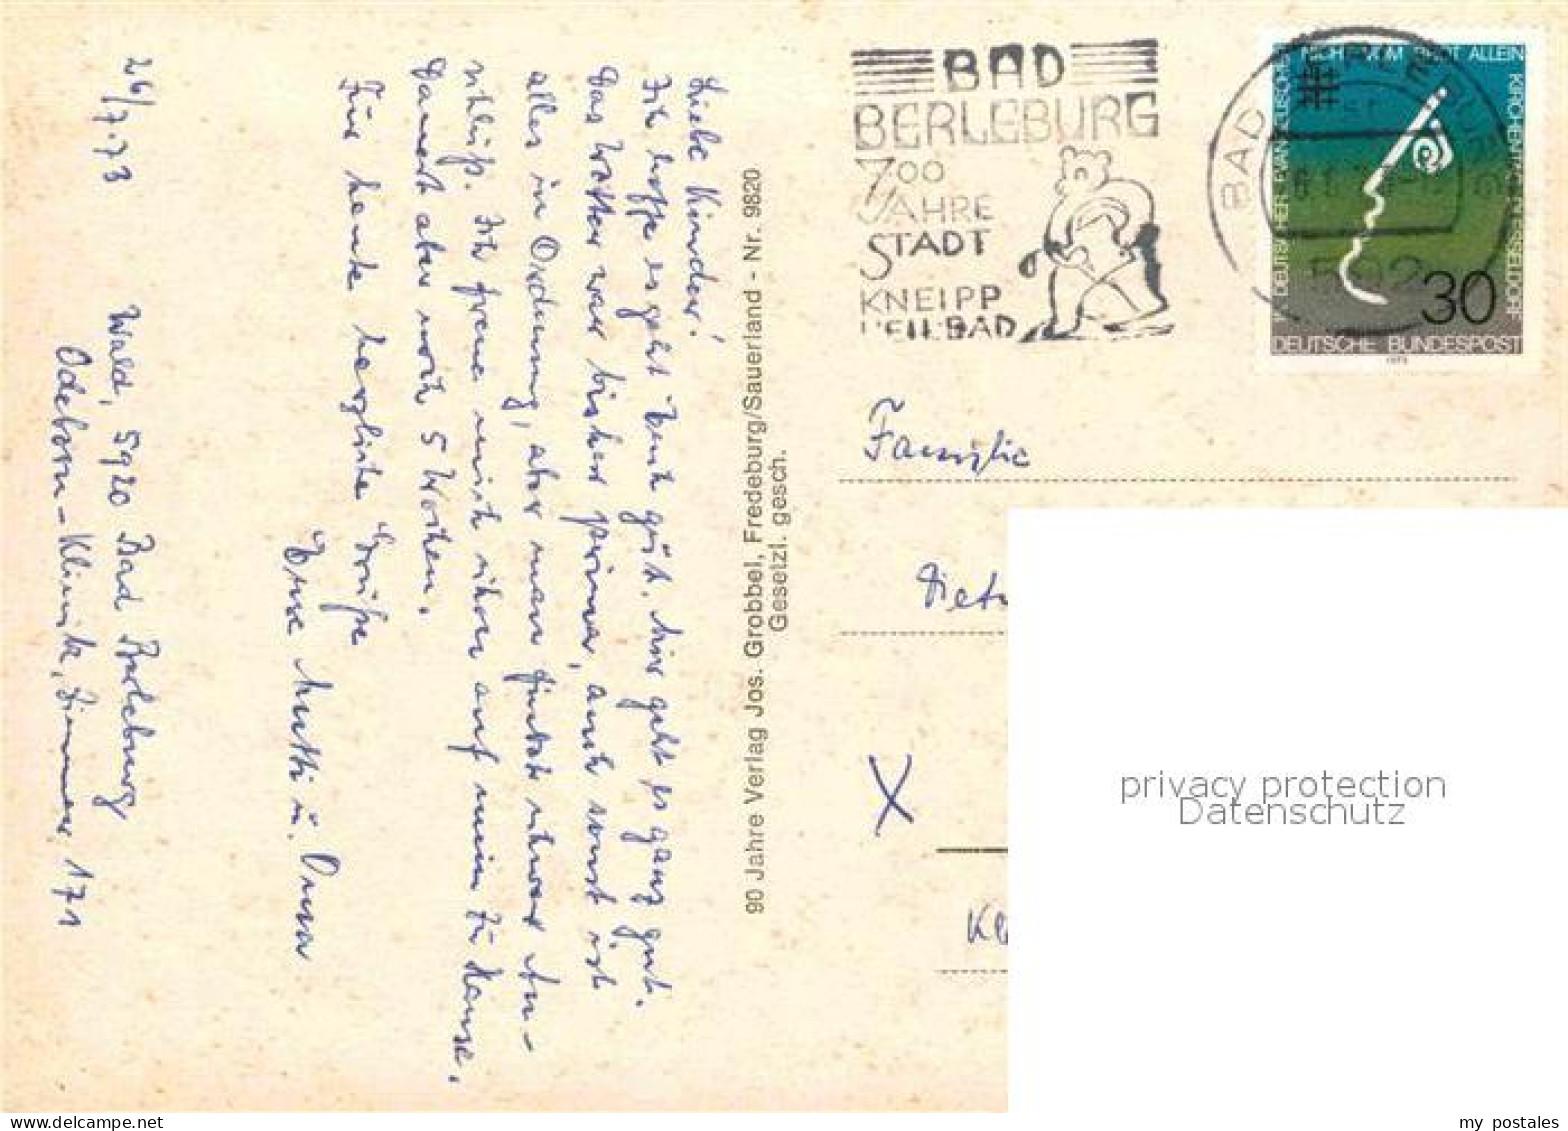 26/7.73
Wald, 5920 Bad Berleburg
Odeborn-Klinik, Zimmer 171
Liebe Kinder!
Ich hoffe es geht Euch gut. Mir geht es ganz gut.
Das Wetter war bisher prima, auch sonst ist
alles in Ordnung, aber man findet schwer An-
schluß. Ich freue mich schon auf mein zu Hause.
Dauert aber noch 5 Wochen.
Für heute herzliche Grüße
Eure Mutti u. Oma
90 Jahre Verlag Jos. Grobbel, Fredeburg/Sauerland - Nr. 9820
Gesetzl. gesch.
BAD
BERLEBURG
700
JAHRE
STADT
KNEIPP
HEILBAD
BAD BERLEBURG
592
NICHT VOM BROT ALLEIN
DEUTSCHER EVANGELISCHER
KIRCHENTAG DÜSSELDORF
30
DEUTSCHE BUNDESPOST
1973
Familie
X
privacy protection
Datenschutz
my postales